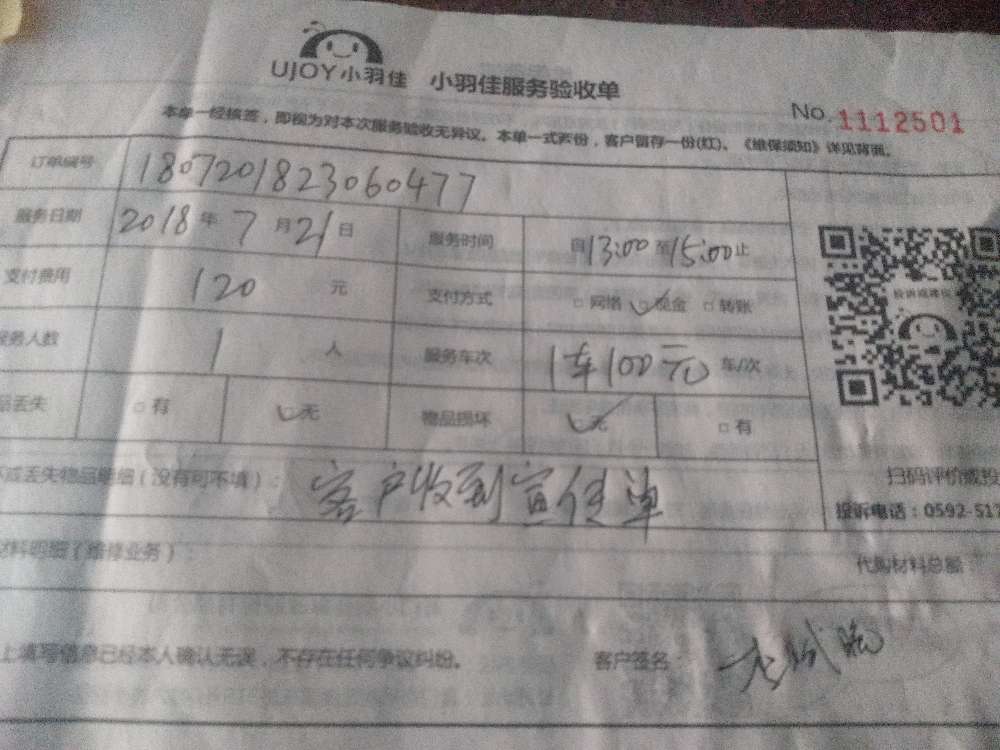 UJOY小羽佳 小羽佳服务验收单
No. 1112501
本单一经核签，即视为对本次服务验收无异议。本单一式两份，客户留存一份(红)。《维保须知》详见背面。
订单编号 1807201823060477
服务日期 2018年7月21日 服务时间 自13:00至15:00止
支付费用 120 元 支付方式 □网络 ☑现金 □转账
服务人数 1 人 服务车次 1车100元 车/次
品丢失 □有 ☑无 物品损坏 ☑无 □有
投诉或建议
坏或丢失物品明细（没有可不填）： 客户收到宣传单
扫码评价或投
投诉电话：0592-517
材料明细（维修业务）： 代购材料总额
上填写信息已经本人确认无误，不存在任何争议纠纷。 客户签名：